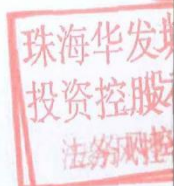 珠海华发
投资控股
法务风控